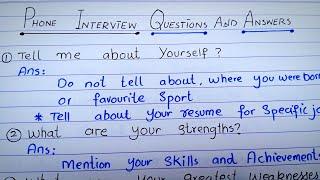 Phone Interview Questions And Answers
① Tell me about Yourself?
Ans:
Do not tell about, where you were born
or favourite Sport
* Tell about your resume for Specific jo
② What are your Strengths?
Ans:
Mention your Skills and Achievements
your greatest Weaknesses